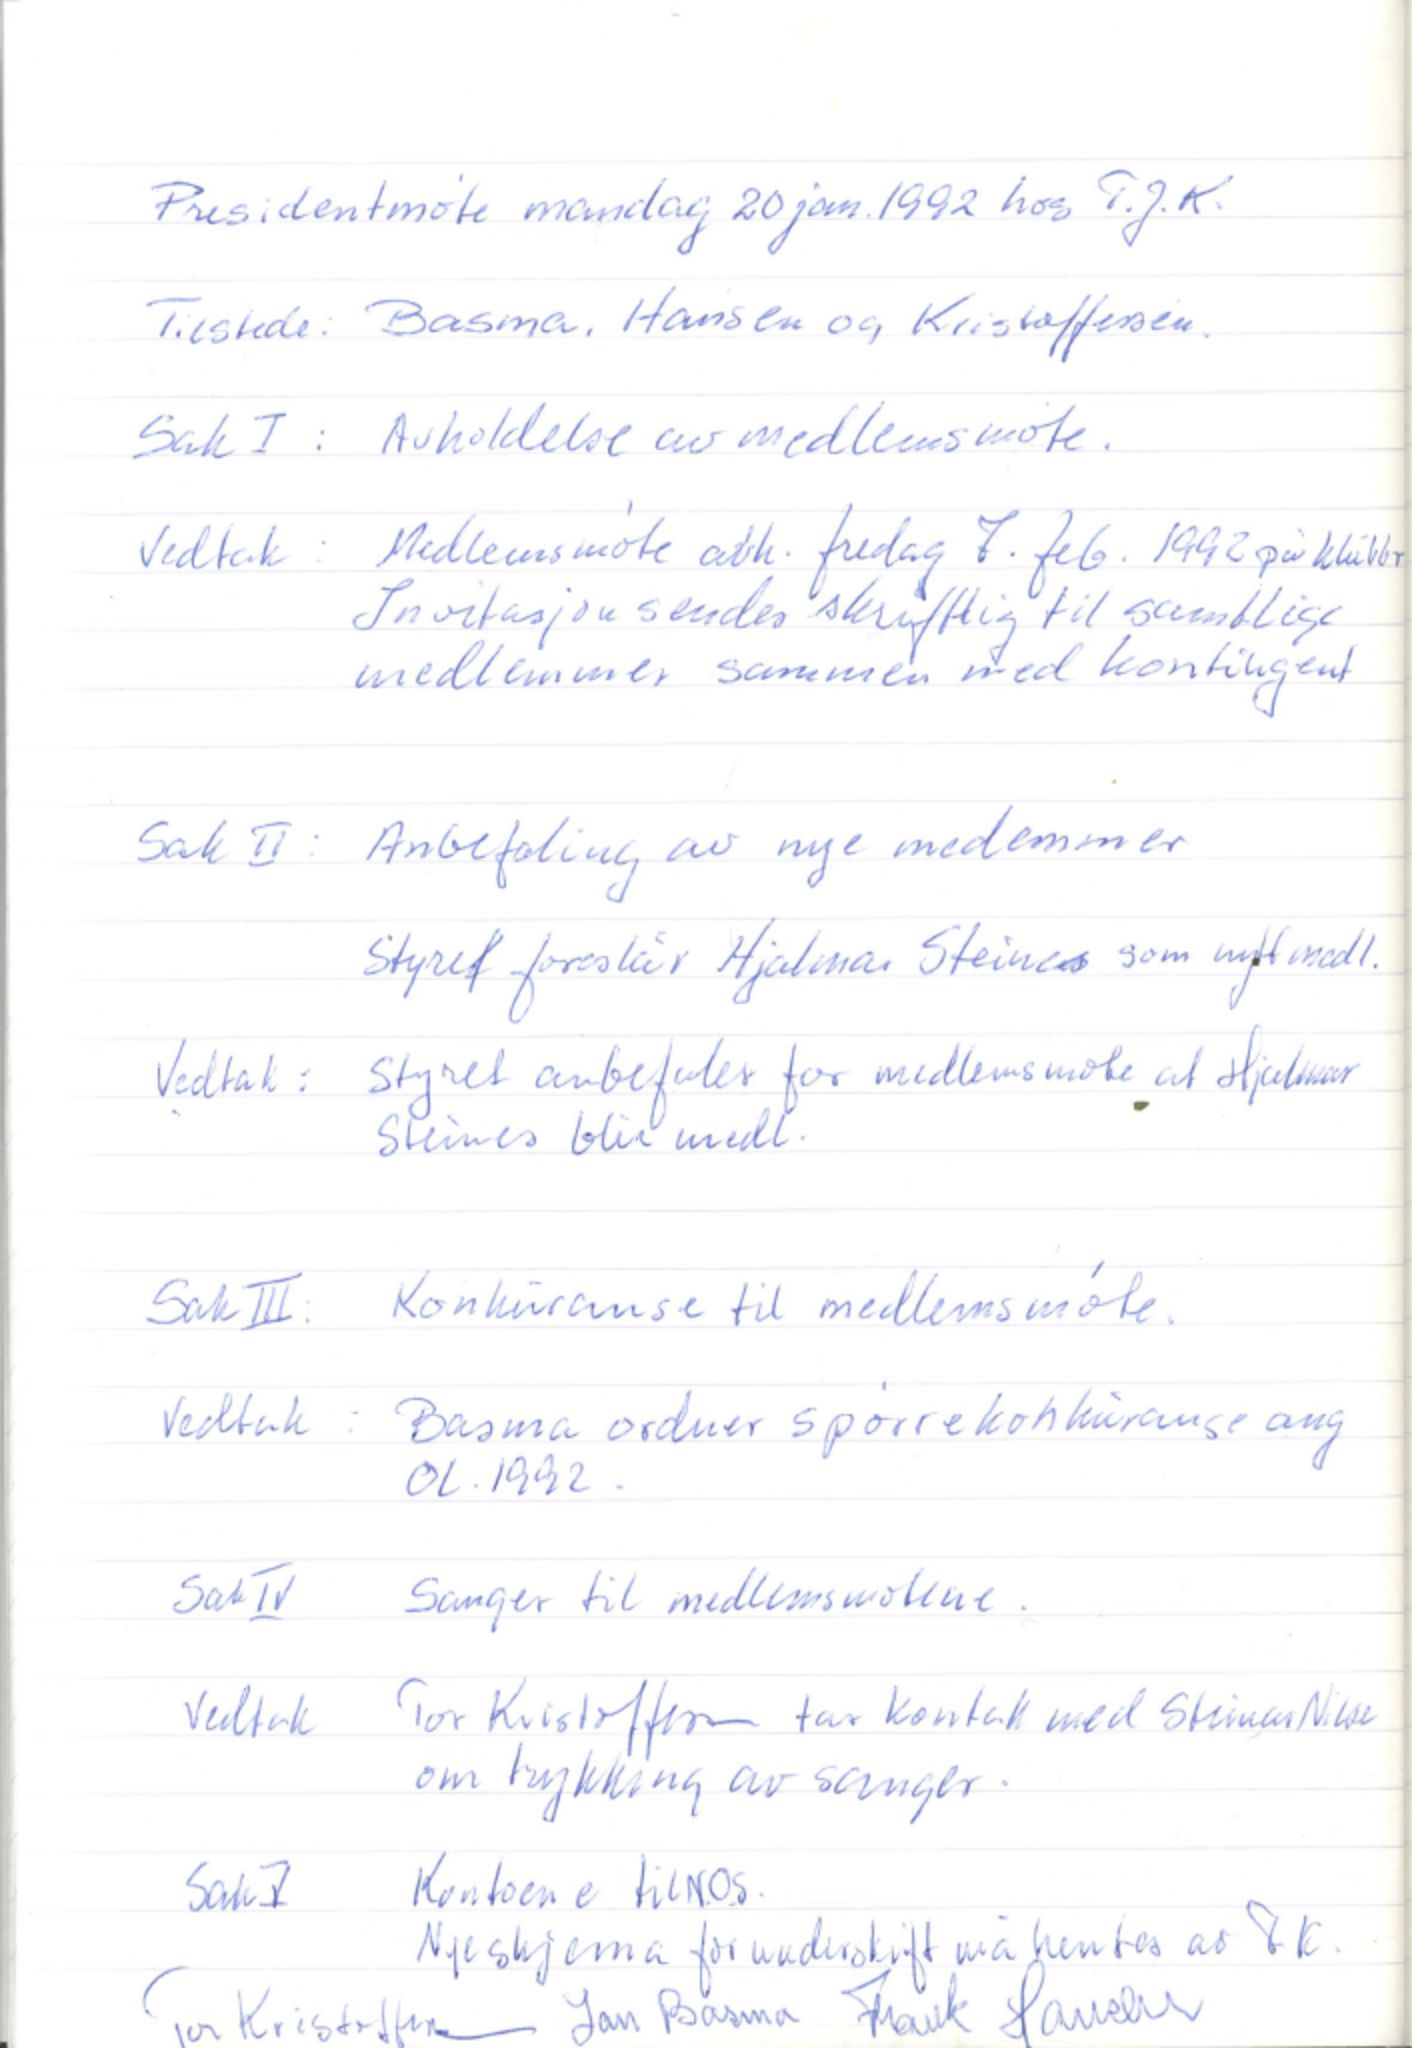 Presidentmöte mandag 20 jan. 1992 hos T.J.K.
Tilstede: Basma, Hansen og Kristoffersen.
Sak I : Avholdelse av medlemsmöte.
Vedtak : Medlemsmöte avh. fredag 7. feb. 1992 på klubb
Invitasjon sendes skriftlig til samtlige
medlemmer sammen med kontingent
Sak II : Anbefaling av nye medemmer
Styret foreslår Hjalmar Steines som nytt medl.
Vedtak : Styret anbefaler for medlemsmöte at Hjalmar
Steines blir medl.
Sak III : Konkuranse til medlemsmöte.
Vedtak : Basma ordner spörrekonkuranse ang
OL. 1992.
Sak IV Sanger til medlemsmötene.
Vedtak Tor Kristoffersen tar kontakt med Steinar Nilse
om trykking av sanger.
Sak V Kontoene til NOS.
Nye skjema for underskrift må hentes av T.K.
Tor Kristoffersen Jan Basma Frank Hansen